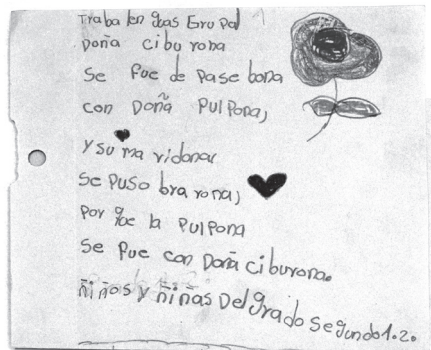 Traba len guas Gru pal
Doña cibu rona
Se fue de pase bona
con Doña Pulpona,
y su ma ridonar
se puso bra rona,
por que la Pulpona
se fue con Doña ciburona.
ñiños y ñiñas Del grado segundo 1.2.